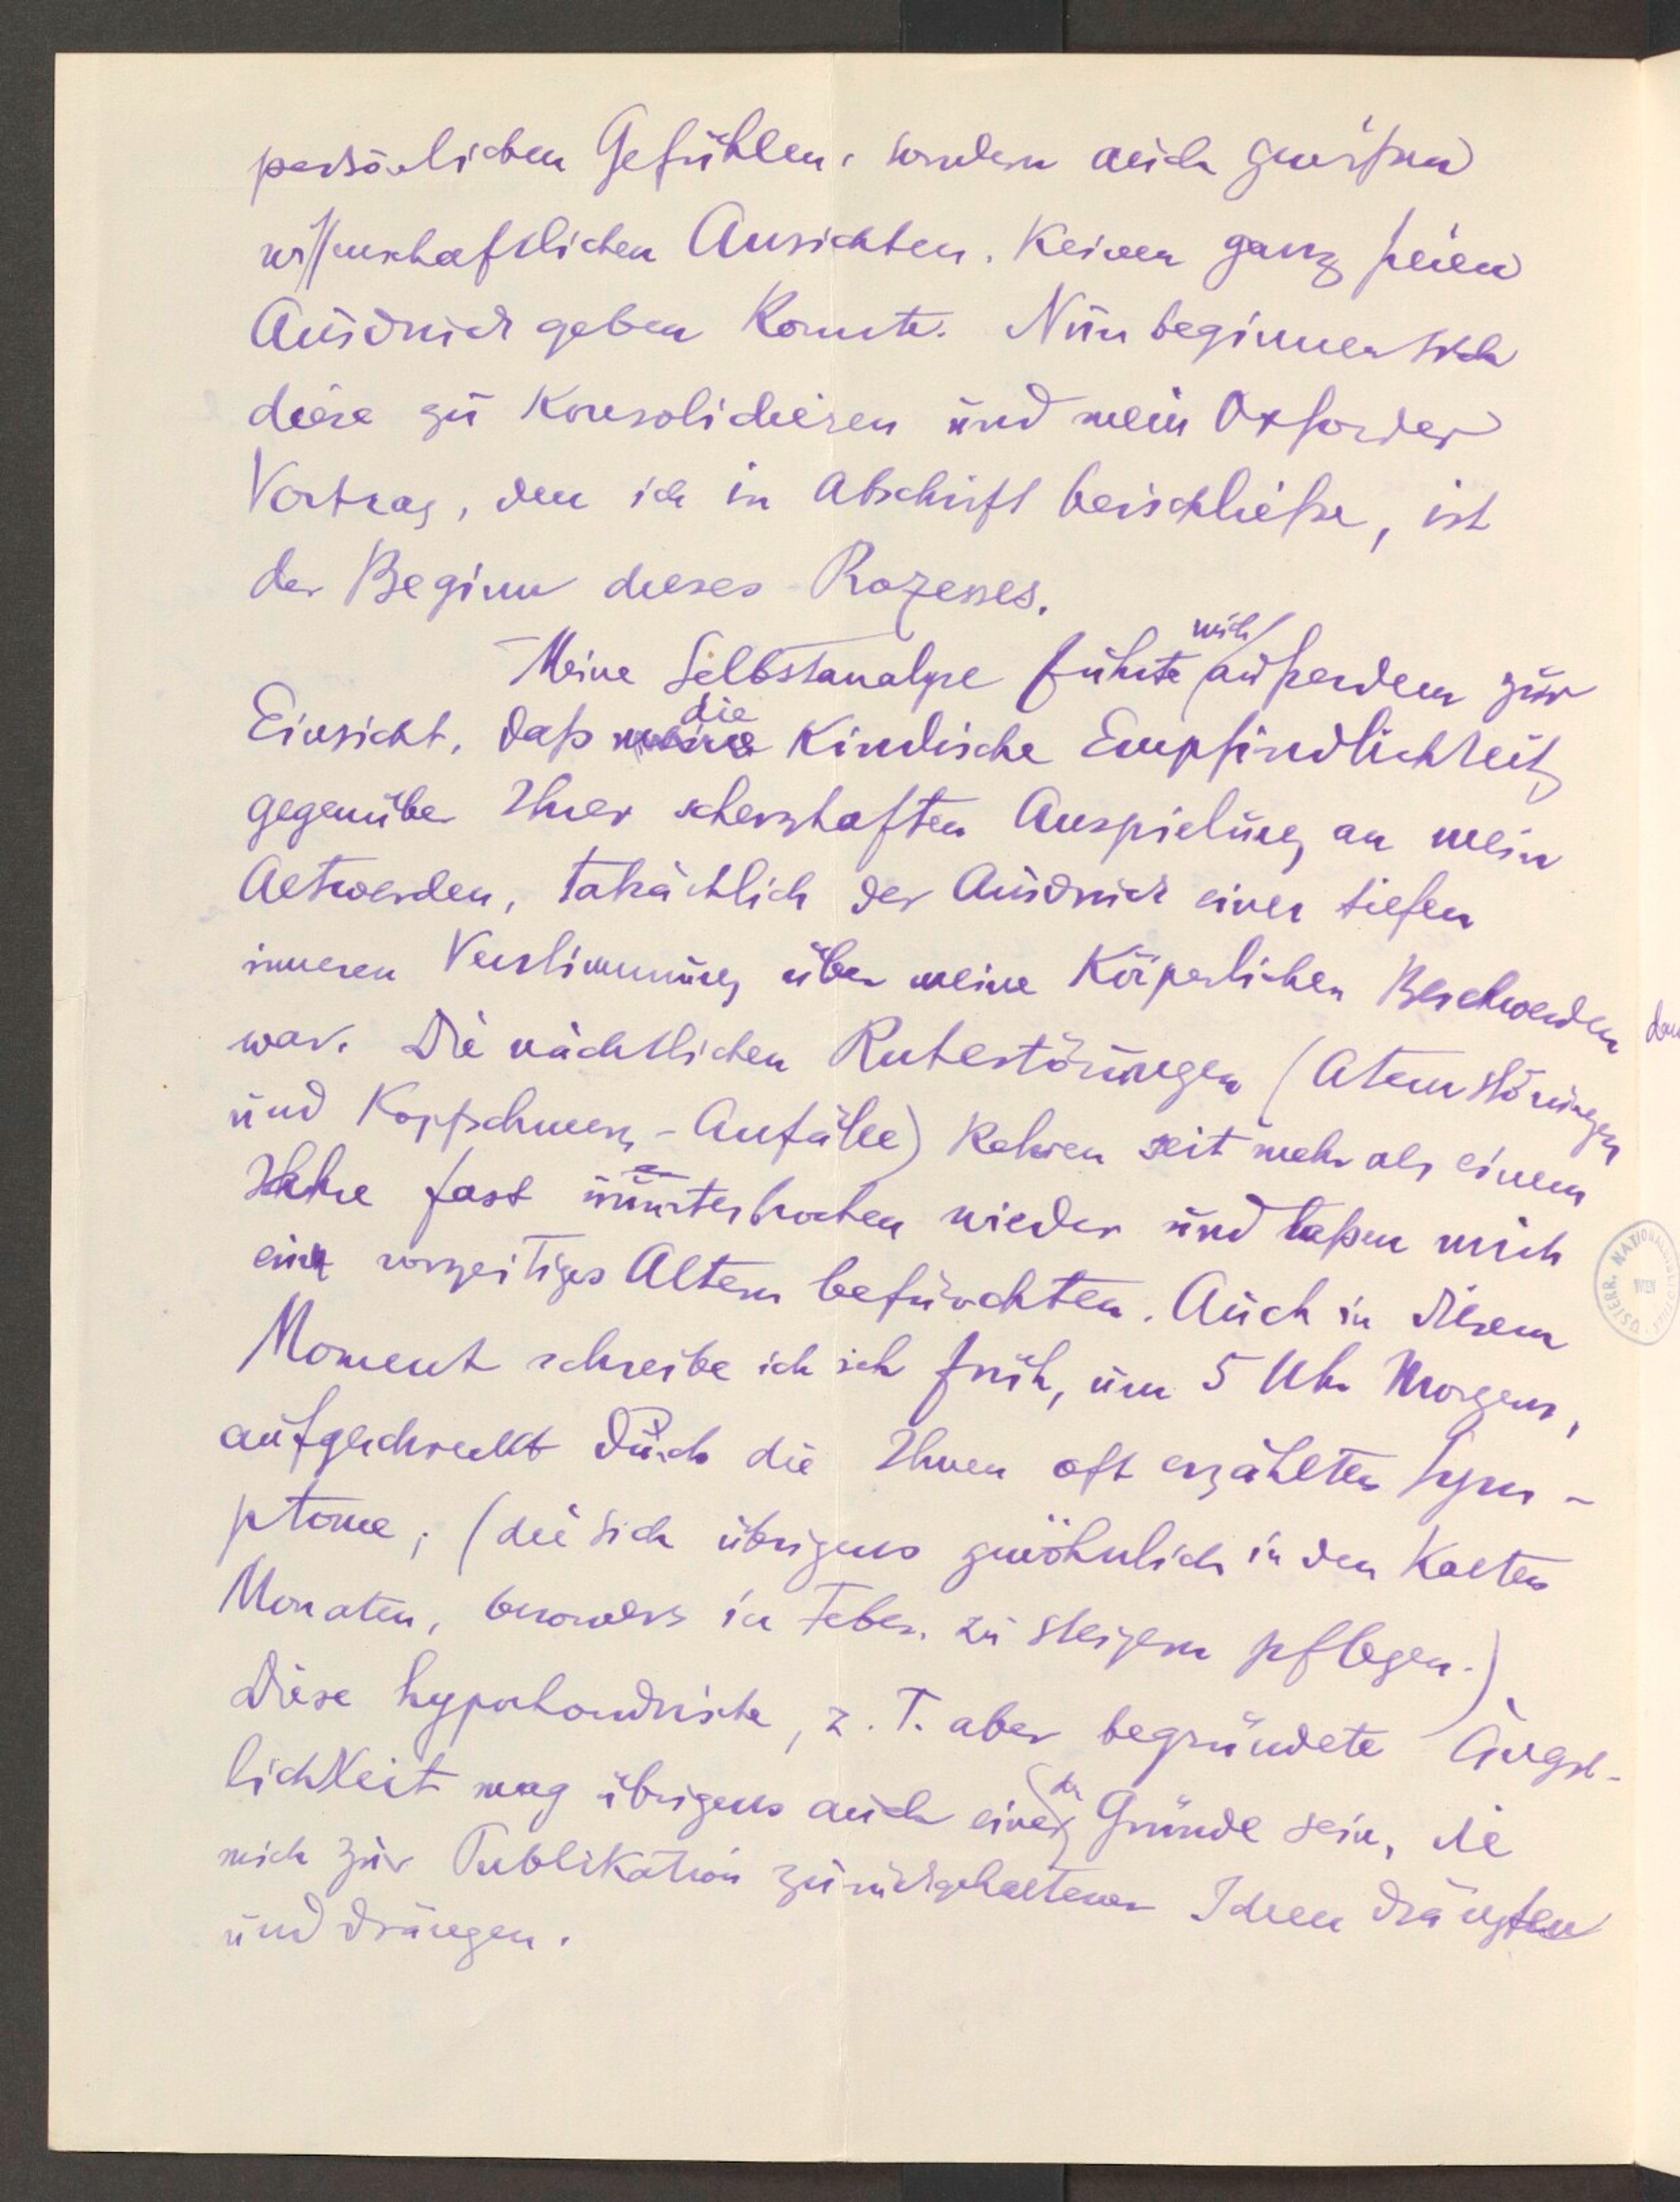 persönlichen Gefühlen, sondern auch gewißen
wissenschaftlichen Ansichten. Keinen ganz freien
Ausdruck geben konnte. Nun beginnen sich
diese zu konsolidieren und mein Oxforder
Vortrag, den ich in Abschrift beischließe, ist
der Beginn dieses Prozesses.
Meine Selbstanalyse führte mich außerdem zur
Einsicht, daß die kindische Empfindlichkeit
gegenüber Ihrer scherzhaften Anspielung an mein
Aeltwerden, tatsächlich der Ausdruck einer tiefen
inneren Verstimmung über meine Körperlichen Beschwerden
war. Die nächtlichen Ruhestörungen (Atemstörungen
und Kopfschmerz-Anfälle) kehren seit mehr als einem
Jahre fast ununterbrochen wieder und laßen mich
ein vorzeitiges Altern befürchten. Auch in diesem
Moment schreibe ich früh, um 5 Uhr Morgens,
aufgeschreckt durch die Ihnen oft erzählten Sym-
ptome, (die sich übrigens gewöhnlich in den Kalten
Monaten, besonders in Feber. zu steigern pflegen.)
Diese hypochondrische, z. T. aber begründete Ängst-
lichkeit mag übrigens auch einer der Gründe sein, die
mich zur Publikation zurückgehaltener Ideen drängten
und drängen.
ÖSTERR. NATIONALBIBLIOTHEK WIEN